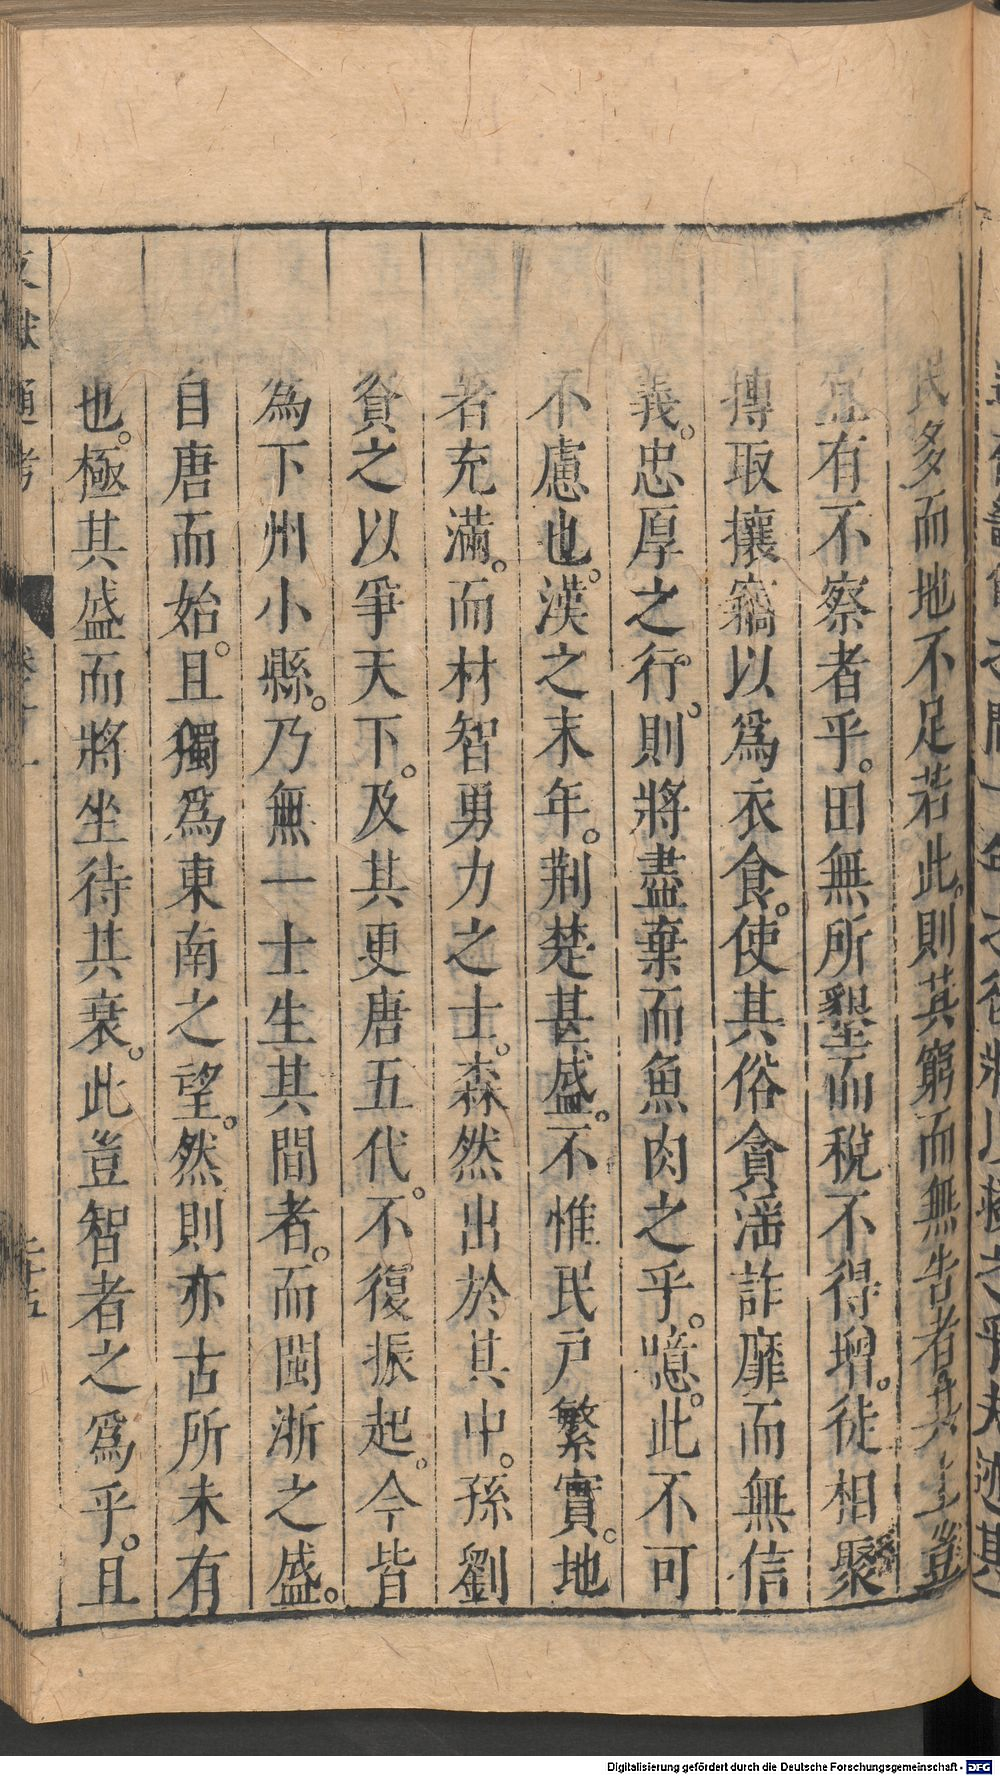 民多而地不足若此。則其窮而無告者其上豈
宜有不察者乎。田無所墾而稅不得增。徒相聚
搏取攘竊以爲衣食。使其俗貪淫詐靡而無信
義。忠厚之行。則將盡棄而魚肉之乎。噫。此不可
不慮也。漢之末年。荆楚甚盛。不惟民戸繁實。地
著充滿。而材智勇力之士。森然出於其中。孫劉
資之以爭天下。及其更唐五代。不復振起。今皆
為下州小縣。乃無一士生其間者。而閩浙之盛。
自唐而始。且獨爲東南之望。然則亦古所未有
也。極其盛而將坐待其衰。此豈智者之爲乎。且
文獻通考
卷十一
二十五
Digitalisierung gefördert durch die Deutsche Forschungsgemeinschaft - DFG